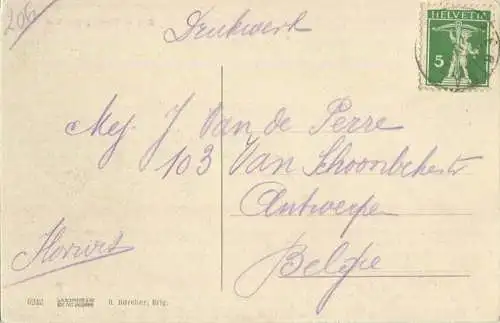 206
Drukwerk
HELVETIA
5
Mej. J Van de Perre
103 Van Schoonbekestr
Antwerpen
Belgie
6242 B. Bürcher, Brig.